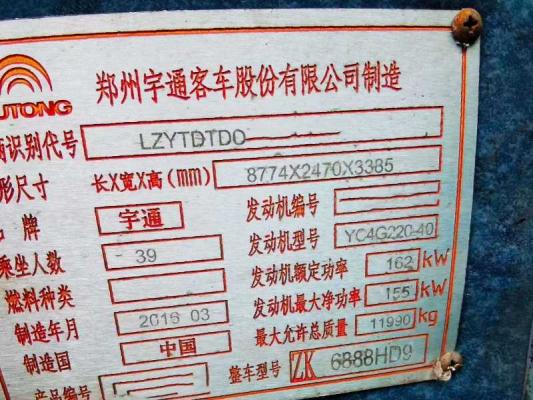 UTONG
郑州宇通客车股份有限公司制造
辆识别代号 LZYTDTDO
形尺寸 长X宽X高(mm) 8774X2470X3385
品牌 宇通 发动机编号
乘坐人数 39 发动机型号 YC4G220-40
燃料种类 发动机额定功率 162 kW
制造年月 2016 03 发动机最大净功率 155 kW
制造国 中国 最大允许总质量 11990 kg
产品编号 整车型号 ZK 6888HD9